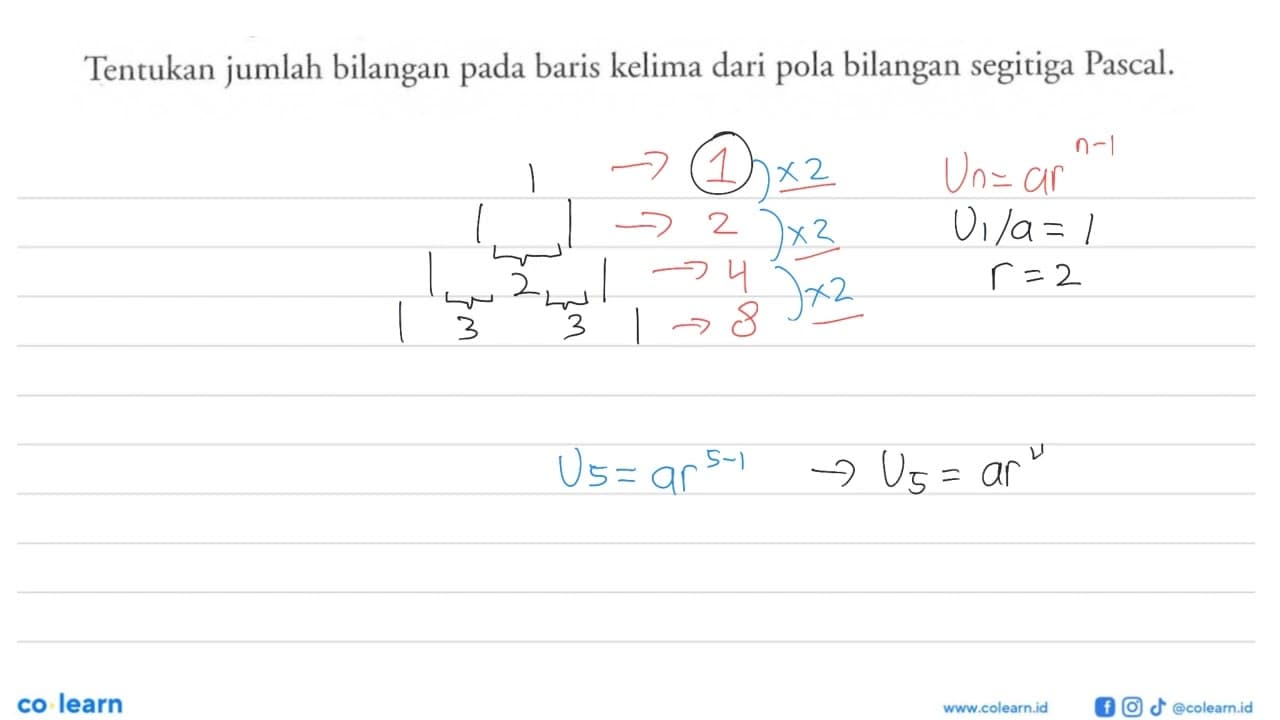 Tentukan jumlah bilangan pada baris kelima dari pola bilangan segitiga Pascal.
1 → 1 ×2 Un = ar^(n-1)
1 1 → 2 ×2 U1/a = 1
1 2 1 → 4 ×2 r = 2
1 3 3 1 → 8
U5 = ar^(5-1) → U5 = ar^4
co learn
www.colearn.id @colearn.id